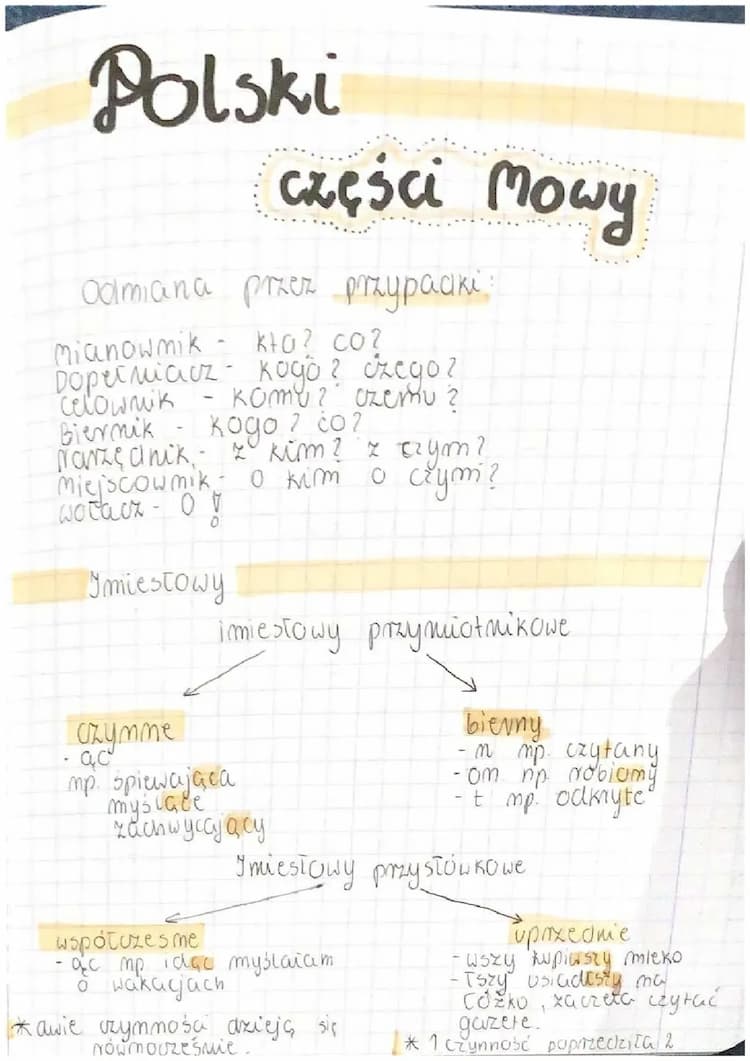 Polski
części Mowy
Odmiana przez przypadki:
mianownik - kto? co?
Dopełniacz - kogo? czego?
celownik - komu? czemu?
Biernik - kogo? co?
Narzędnik - z kim? z czym?
Miejscownik - o kim o czym?
wołacz - O!
Imiesłowy
imiesłowy przymiotnikowe
czynne
- ąc
np. śpiewająca
myślące
zachwycający
bierny
- n np. czytany
- on np. robiony
- t np. odkryte
Imiesłowy przysłówkowe
współczesne
- ąc np idąc myślałam
o wakacjach
* dwie czynności dzieją się
równocześnie.
uprzednie
- wszy kupiwszy mleko
- łszy usiadłszy na
łóżko, zaczęła czytać
gazete.
* 1 czynność poprzedziła 2